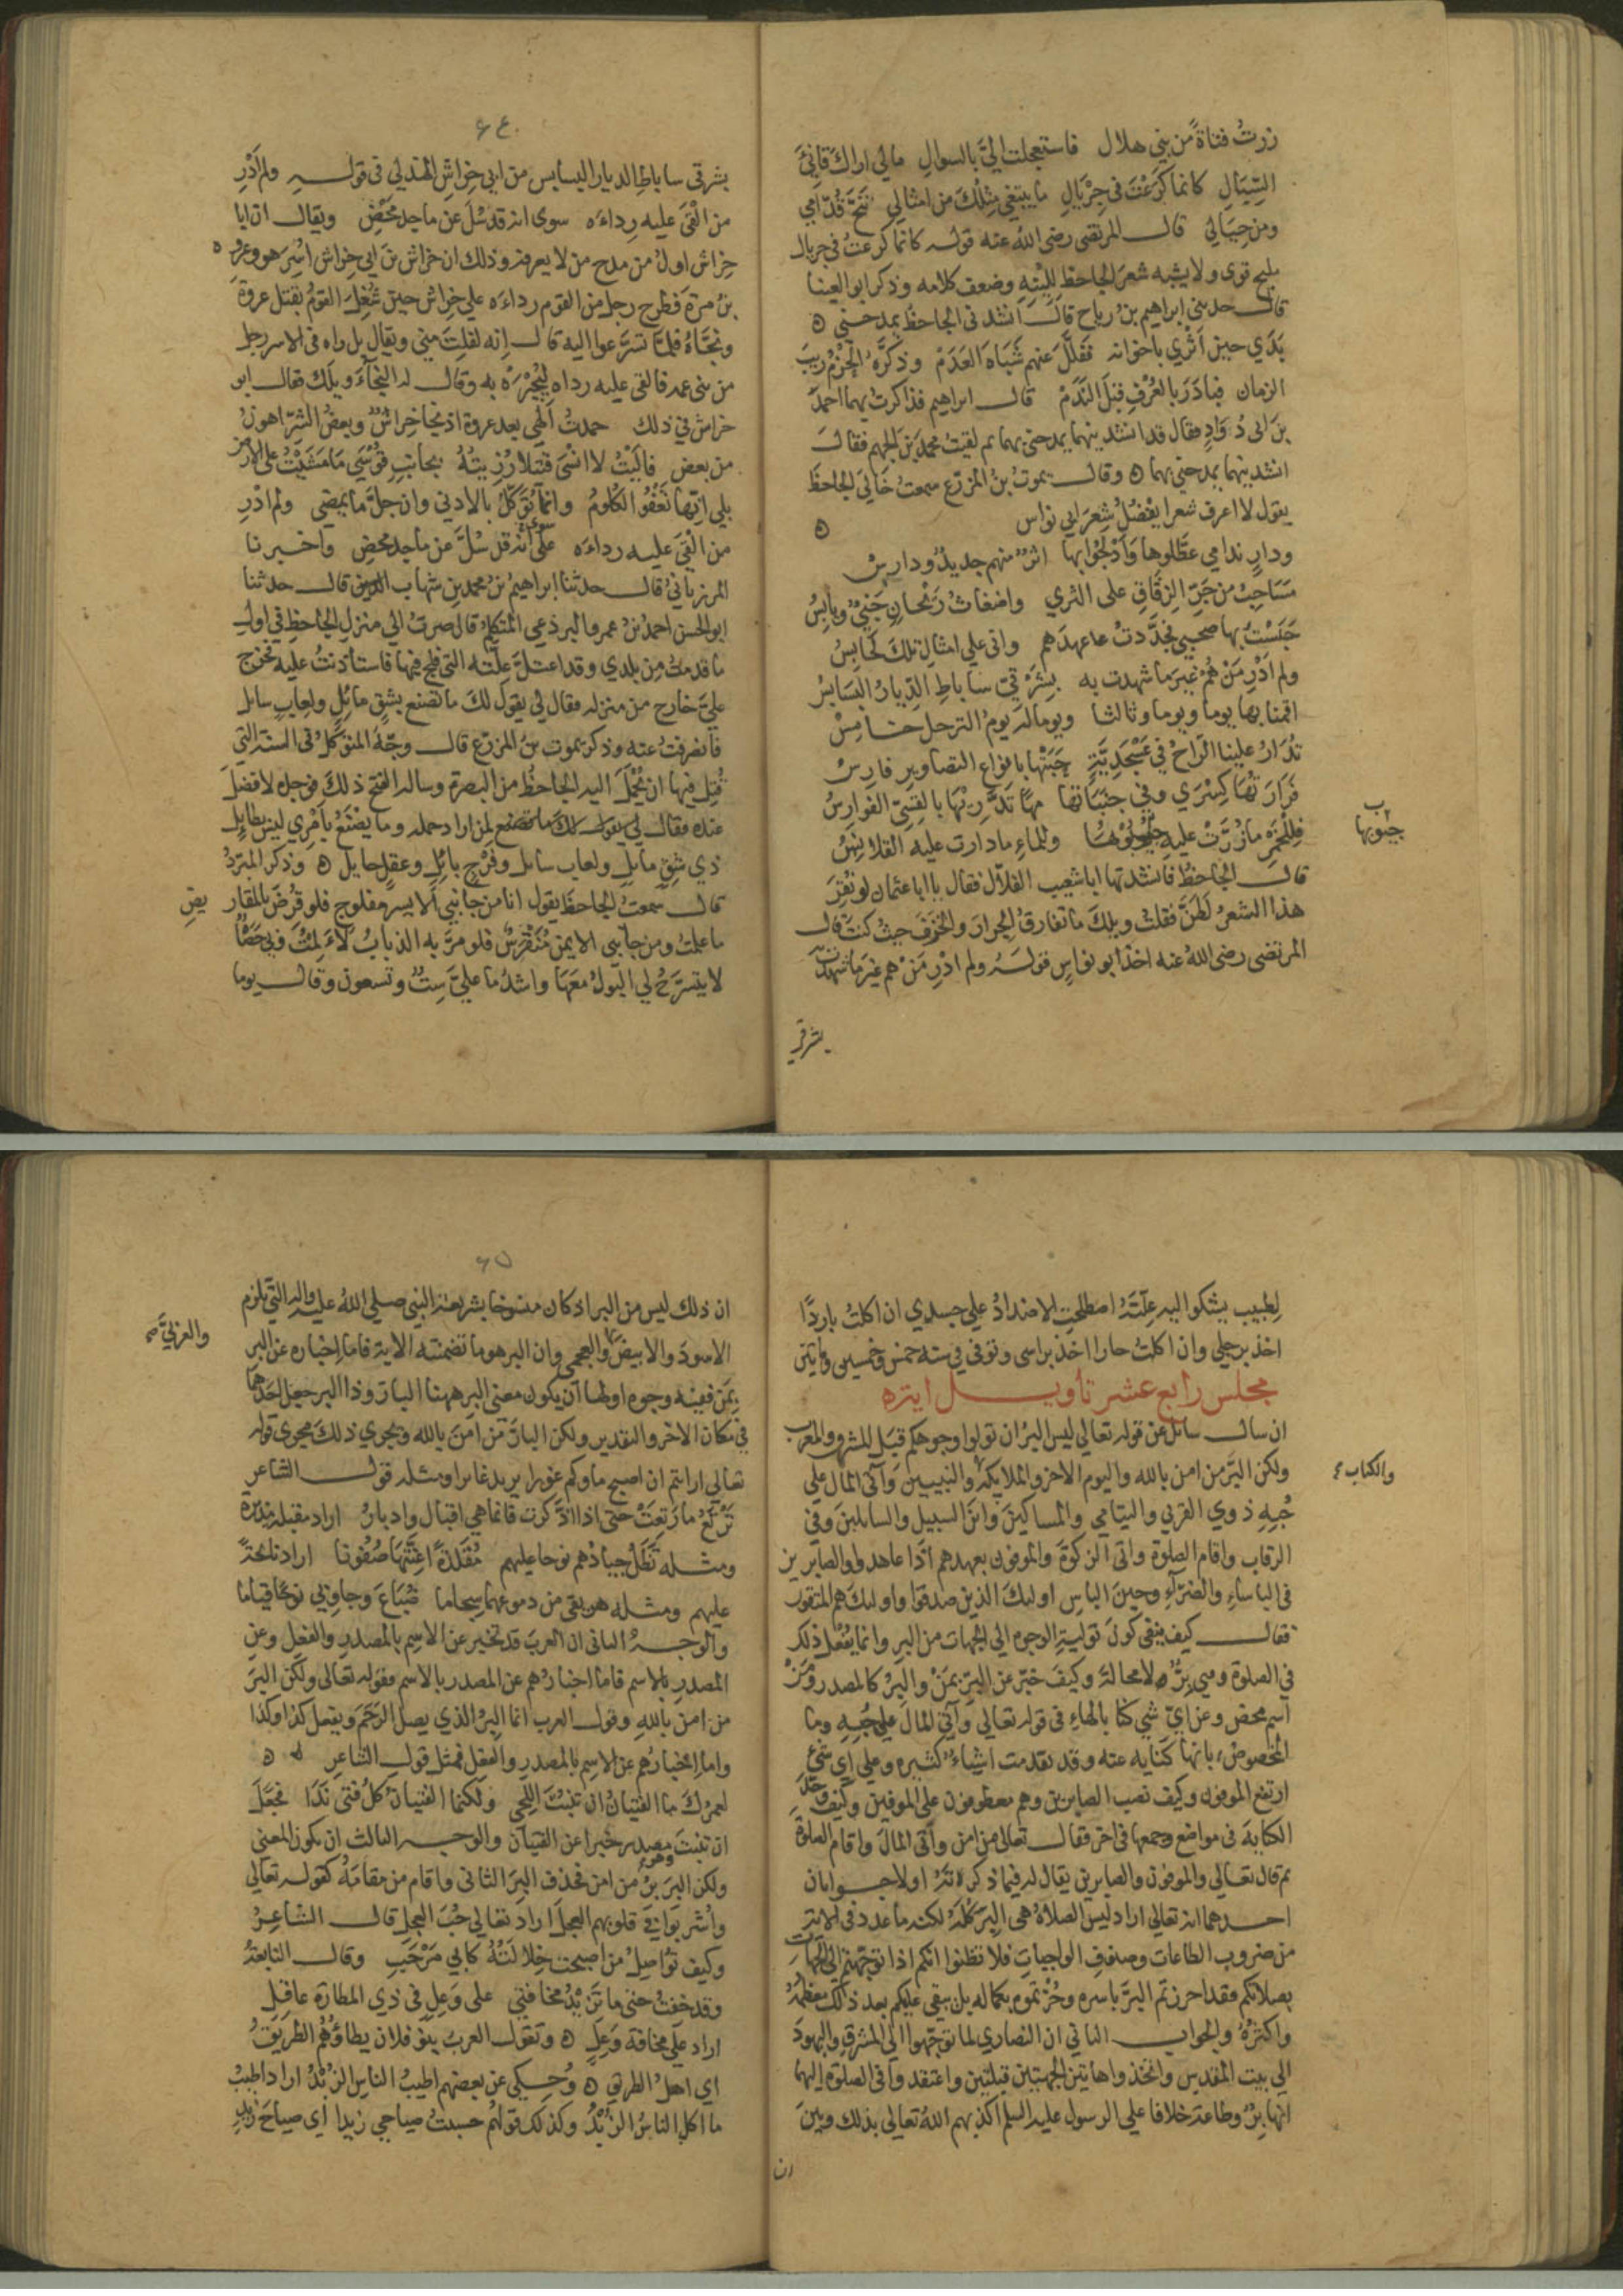 زرتُ فتاةً من بني هلال فاستعجلت اليَّ بالسوالِ مالي اراكَ قانِئَ
السِّبَالِ كانما كَرَعْتَ في جِرْيَالِ ما يبتغي مِثلُكَ من امثالي تَنَحَّ قُدَّامي
ومن حِيَالي قالــ المرتضى رضى اللهُ عنه قوله كانما كرعتُ في جريال
مليح قوى ولا يشبه شعرَ الجاحظ لِلِينِهِ وضعف كلامه وذكر ابو العينا
قالــ حدثني ابراهيم بنُ رباح قالَــ انشد في الجاحظُ يمدحني ه
بَدَي حين اَثْرَي باخوانه فَفَلَّلَ عنهم شَبَاهَ العَدَمْ وذكَّرَه الحَزْمُ ريبَ
الزمان فبادَرَ بالعُرْفِ قبلَ النَّدَمْ قالــ ابراهيم فذاكرتُ بهما احمدَ
بنَ ابى دُوَادٍ فقال قد انشدنيهما يمدحنى بهما ثم لقيتُ محمدَ بنَ الجهم فقالَــ
انشدنيهما يمدحني بهما ه وقالــ يموتُ بنُ المزرّع سمعتُ خَالِيَ الجاحظَ
يقول لا اعرف شعرا يفضُلُ شِعرَ ابي نواس ه
ودارِ ندامي عطَّلوها وَاَدْلَجُوا بها اثرٌ منهم جديدٌ ودارسْ
مَسَاحِبُ من جَرِّ الزِقَاقِ على الثري واضغاثُ رَيْحانٍ جَنِيٌّ ويابسُ
حَبَسْتُ بها صحبي فجدَّدتُ عهدَهم واني علي امثالِ تلكَ لحابسُ
ولم اَدْرِ مَنْ هُمْ غيرَ ما شهدت به بِشَرْقِيّ سَاباطِ الدّيارُ البَسَابسُ
اقمنا بها يوما ويوما وثالثا ويوما له يومُ الترحل خامسْ
تُدَارُ علينا الرّاحُ في عَسْجَدِيَّةٍ حَبَتْها بانواعِ التصاويرِ فارسْ
قَرَارَتُها كِسْرَي وفي جنَبَاتها مَهًا تدَّرِيهَا بالقِسِيِّ الفوارسُ
فلِلخَمْرِ ما زُرَّتْ عليهِ جُيُوبُها وللماءِ ما دارت عليه القلانِسُ
قالــ الجاحظُ فانشدتها ابا شعيب القلّال فقال يا ابا عثمان لو نُقِرَ
هذا الشعرُ لَطَنَّ فقلتُ ويلكَ ما تفارقُ الجرارَ والخَزَفَ حيثُ كنتَ قالــ
المرتضى رضى اللهُ عنه اخذ ابو نواسٍ قولَهُ ولم ادْرِ مَنْ هم غيرَ ما شهدت به
جيوبها
بشرقي
٦٤
بشرقى ساباطِ الديار البسابس من ابي خِراشٍ الهذلي في قولــهِ ولم اَدْرِ
من القَيَ عليه رِداءَه سوى انه قد سُلَّ عن ماجد مَحْضِ ويقالــ ان ابا
خراش اولُ من مدح من لا يعرفه وذلك ان خراش بنَ ابي خِراش اُسِرَ هو وعروة
بنُ مرة فطرح رجل من القوم رداءَه علي خِراش حين شُغِلَ القومُ بقتل عروةَ
ونجَّاهُ فلمّا تسرَّعوا اليه قالــ اِنه لفلِتَ مني ويقال بل راه في الاسر رجل
من بني عمه فالقي عليه رداه لِيُجيْرَهُ به وقالــ له النجآءَ ويلَكَ فقالــ ابو
خراش في ذلك حمدتُ الٰهي بعد عروة اذ نجا خِراشٌ وبعضُ الشرّ اهونُ
من بعض فاليْتُ لا انسَى قتيلا رُزِيتُهُ بجانبِ قُوسَي مَا مَشَيْتُ على الارض
بلي اِنّها تَعْفُو الكُلومُ وانما نُوَكَّلُ بالادني وان جلَّ ما يمضي ولم ادْرِ
من القَيَ عليــه رداءَه علي انه قد سُلَّ عن ماجدٍ محضِ واخــبرنا
المرزبانيُ قالــ حدثنا ابراهيمُ بنُ محمدِ بنِ شهاب قالــ حدثنا
ابو الحسن احمدُ بنُ عمرو البرذعي المتكلمُ قال صرتُ الي منزلِ الجاحظِ في اولِ
ما قدمتُ من بلدي وقد اعتلَّ علّته التى فلج فيها فاستأذنتُ عليه فخرج
عليَّ خارج من منزله فقال لي يقولُ لكَ ما تصنع بشقٍ مائلٍ ولعابٍ سائل
فانصرفتُ عنه وذكر يموت بنُ المزرع قالــ وجّهَ المتوكلُ في السنة التي
قُتِل فيها ان يُحْمَلَ اليه الجاحظُ من البصرة وساله الفتحُ ذلكَ فوجده لا فضلَ
عنده فقالــ لي يقولــ لكَ ما تصنع لمن اراد حمله وما يصْنَعُ بامْرِئٍ ليس بطايِل
ذي شقٍ مايلٍ ولعاب سائل وفرْجٍ بائلٍ وعقلٍ حايل ه وذكر المبَردُ
قالــ سمعت الجاحظَ يقول انا من جانبي الايسر مفلوج فلو قُرِضَ بالمقار يض
ما علمتُ ومن جانبي الايمن مُنَقْرَسٌ فلو مرَّ به الذبابُ لَاَلِمْتُ وبي حَصًا
لا يتسرَّحُ لي البَولُ معَهَا واشدُ ما عليَّ سِتٌ وتسعون وقالــ يوما
لِطبيبٍ يشكوا اليه علّتَهُ اصطلحتِ الاضدادُ على جسدي ان اكلتُ باردًا
اخذ برجلي وان اكلتُ حارا اخذ براسى وتوفى في سنة خمسٍ وخمسين ومايتين
مجلس رابع عشر تأويــل ايته
ان سالــ سائل عن قوله تعالي ليس البرُ ان تولوا وجوهكم قبَل المشرق والمغرب
ولكن البرَّ من امن بالله واليوم الاخر والملائكة والنبيين وَآتى المال علي
حُبِهِ ذوي القربي واليتامي والمساكينَ وابن السبيل والسائلينَ وفي
الرقاب واقام الصلوةَ واتى الزكوةَ والموفون بعهدهم اذا عاهدوا والصابرين
في الباساءِ والضرّاءِ وحينَ الباسِ اوليكَ الذين صدقوا واوليكَ هم المتقون
فقالــ كيف ينفي كونَ توليةِ الوجوه الي الجهات من البر وانما يفعل ذلك
في الصلوة وهي بِرٌّ لا محالة وكيفَ خبّر عن البِرّ بمَنْ والبِرُ كالمصدر ومَنْ
اسم محض وعن ايّ شي كنا بالهاءِ في قوله تعالي وآتى المالَ على حُبِهِ وما
المخصوصُ بانها كناية عنه وقد تقدمت اشياءٌ كثيره وعلي اي شيءٍ
ارتفع الموفون وكيف نصب الصابرين وهم معطوفون على الموفين وكيفَ وحّد
الكنايةَ في مواضع وجمعها في اخر فقالــ تعالى من امن وآتى المالَ واقام الصلوةَ
ثم قال تعالي والموفون والصابرين يقال له فيما ذكرته اولا جــوابان
احــدهما انه تعالي اراد ليس الصلاةُ هي البِرَّ كلَّهُ لكنه ما عدد في الاية
من ضروب الطاعات وصنوفِ الواجباتِ فلا تظنوا انكم اذا توجّهتم الى الجهات
بصلاتكم فقد احرزتم البرَّ باسره وحُزْتموه بكماله بل يبقى عليكم بعد ذلكَ معظمُهُ
واكثرُهُ والجوابــ الثاني ان النصاري لما توجّهوا الي المشرقِ واليهودَ
الي بيت المقدس واتخذوا هاتين الجهتين قبلتين واعتقدوا في الصلوة اليهما
انها بِرٌ وطاعة خلافا علي الرسول عليه السلم اكذبهم اللهُ تعالي بذلك وبينَ
والكتاب
ان
٦٥
ان ذلك ليس من البر اذ كان منسوخا بشريعة النبيّ صلي اللهُ عليه واله التي تلزم
الاسودَ والابيضَ والعجمى وان البر هو ما تضمنته الاية فاما اخباره عن البر
بِمَنْ ففيه وجوه اولها ان يكون معنى البر ههنا البارَّ وذا البر جعل احدهما
في مكان الاخر والتقدير ولكن البارَّ من امنَ بالله ويجري ذلكَ مجرى قوله
تعالي ارايتم ان اصبح ماوكم غورا يريد غايرا ومثله قولــ الشاعر
تَرْتَعُ ما رَتعَتْ حتى اذا ادَّكرت فانما هي اقبال وادبارُ اراد مقبلة مدبرة
ومثــله تَظَلُ جيادُهم نوحا عليهم مُقَلَّدَةً اعِنَّتُهَا صُفُونا اراد نائحةً
عليهم ومثــله هريقي من دموعهما سِجاما ضُبَاعَ وجاوِبي نوحًا قياما
والوجــهُ الثاني ان العربَ قد تخبر عن الاسم بالمصدرِ والفعل وعن
المصدرِ بالاسم فاما اخبارُهم عن المصدر بالاسم فقوله تعالى ولكن البرَ
من امن باللهِ وقولــ العرب انما البِرُ الذي يصل الرّحِمَ ويفعل كذا وكذا
واما اخبارُهم عن الاسمِ بالمصدرِ والفعلِ فمثل قولــ الشاعرِ ه
لعمرُكَ ما الفتيانُ ان تنبُتَ اللِّحي ولكنما الفتيانُ كلُ فتى نَدَا فجعَلَ
ان تنبتَ وهو مصدر خبرا عن الفتيان والوجــه الثالث ان يكون المعنى
ولكن البرَ بِرُ من امن فحذف البِرَ الثاني واقام من مقامَهُ كقوله تعالي
واُشْرِبُوا في قلوبهم العجلَ اراد تعالي حُبَ العجلِ قالــ الشاعِرُ
وكيف تُوَاصِلُ من اصبحت خِلالتُهُ كابي مَرْحَبِ وقالــ النابغةُ
وقد خفتُ حتى ما تَزِيْدُ مخافتي على وَعِلٍ في ذي المطارة عاقلِ
اراد علي مخافة وَعِلٍ ه وتقول العربُ بنو فلان يطاؤُهُم الطريقُ
اي اهلُ الطريقِ ه وحــكي عن بعضهم اطيبُ الناس الزُبْدُ اراد اطيبُ
ما اكل الناسُ الزُبْدُ وكذلك قولهُم حسبتُ صياحي زيدا اي صياحَ زيدٍ
والعربيَّ صح